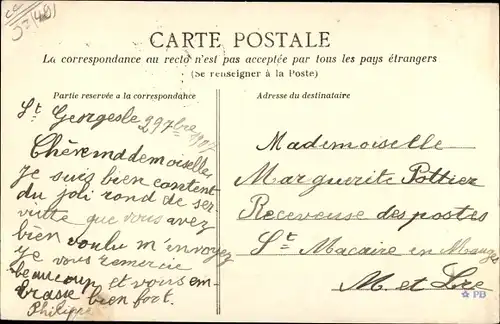 CARTE POSTALE
La correspondance au recto n'est pas acceptée par tous les pays étrangers
(Se renseigner à la Poste)
Partie reservée a la correspondance
St Georges le 29 7bre 1907
Chère mademoiselle
je suis bien content
du joli rond de ser-
vitte que vous avez
bien voulu m'invoyez
je vous remercie
beaucoup et vous em-
brasse bien fort.
Philippe
Adresse du destinataire
Mademoiselle
Marguerite Pottier
Receveuse des postes
St Macaire en Mauges
M. et Lre
PB